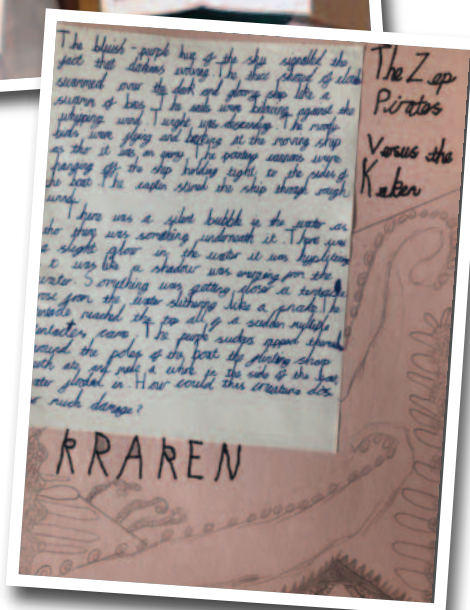 The bluish-purple hue of the sky signalled the
fact that darkness was The thick shroud of clouds
swarmed over the dark and gloomy ship like a
swarm of bees. The sails were battering against the
whipping wind. Twilight was descending. The
birds were flying and at the moving ship
as tho it was an enemy. The cannons were
hanging off the ship holding tight to the sides of
the boat. The captin the ship through rough
There was a silent bubble in the water as
tho there was something underneath it. There was
a slight glow in the water it was
it was like a shadow was emerging from the
water. Something was getting closer a tentacle
rose from the water slithering like a snake. The
reached the top all of a sudden multiple
tentacles came. The purple suckers
around the poles of the boat the
and made a in the side of the boat
water in. How could this creature do
so much damage?
The Zep
Pirates
Versus the
Kraken
KRAKEN